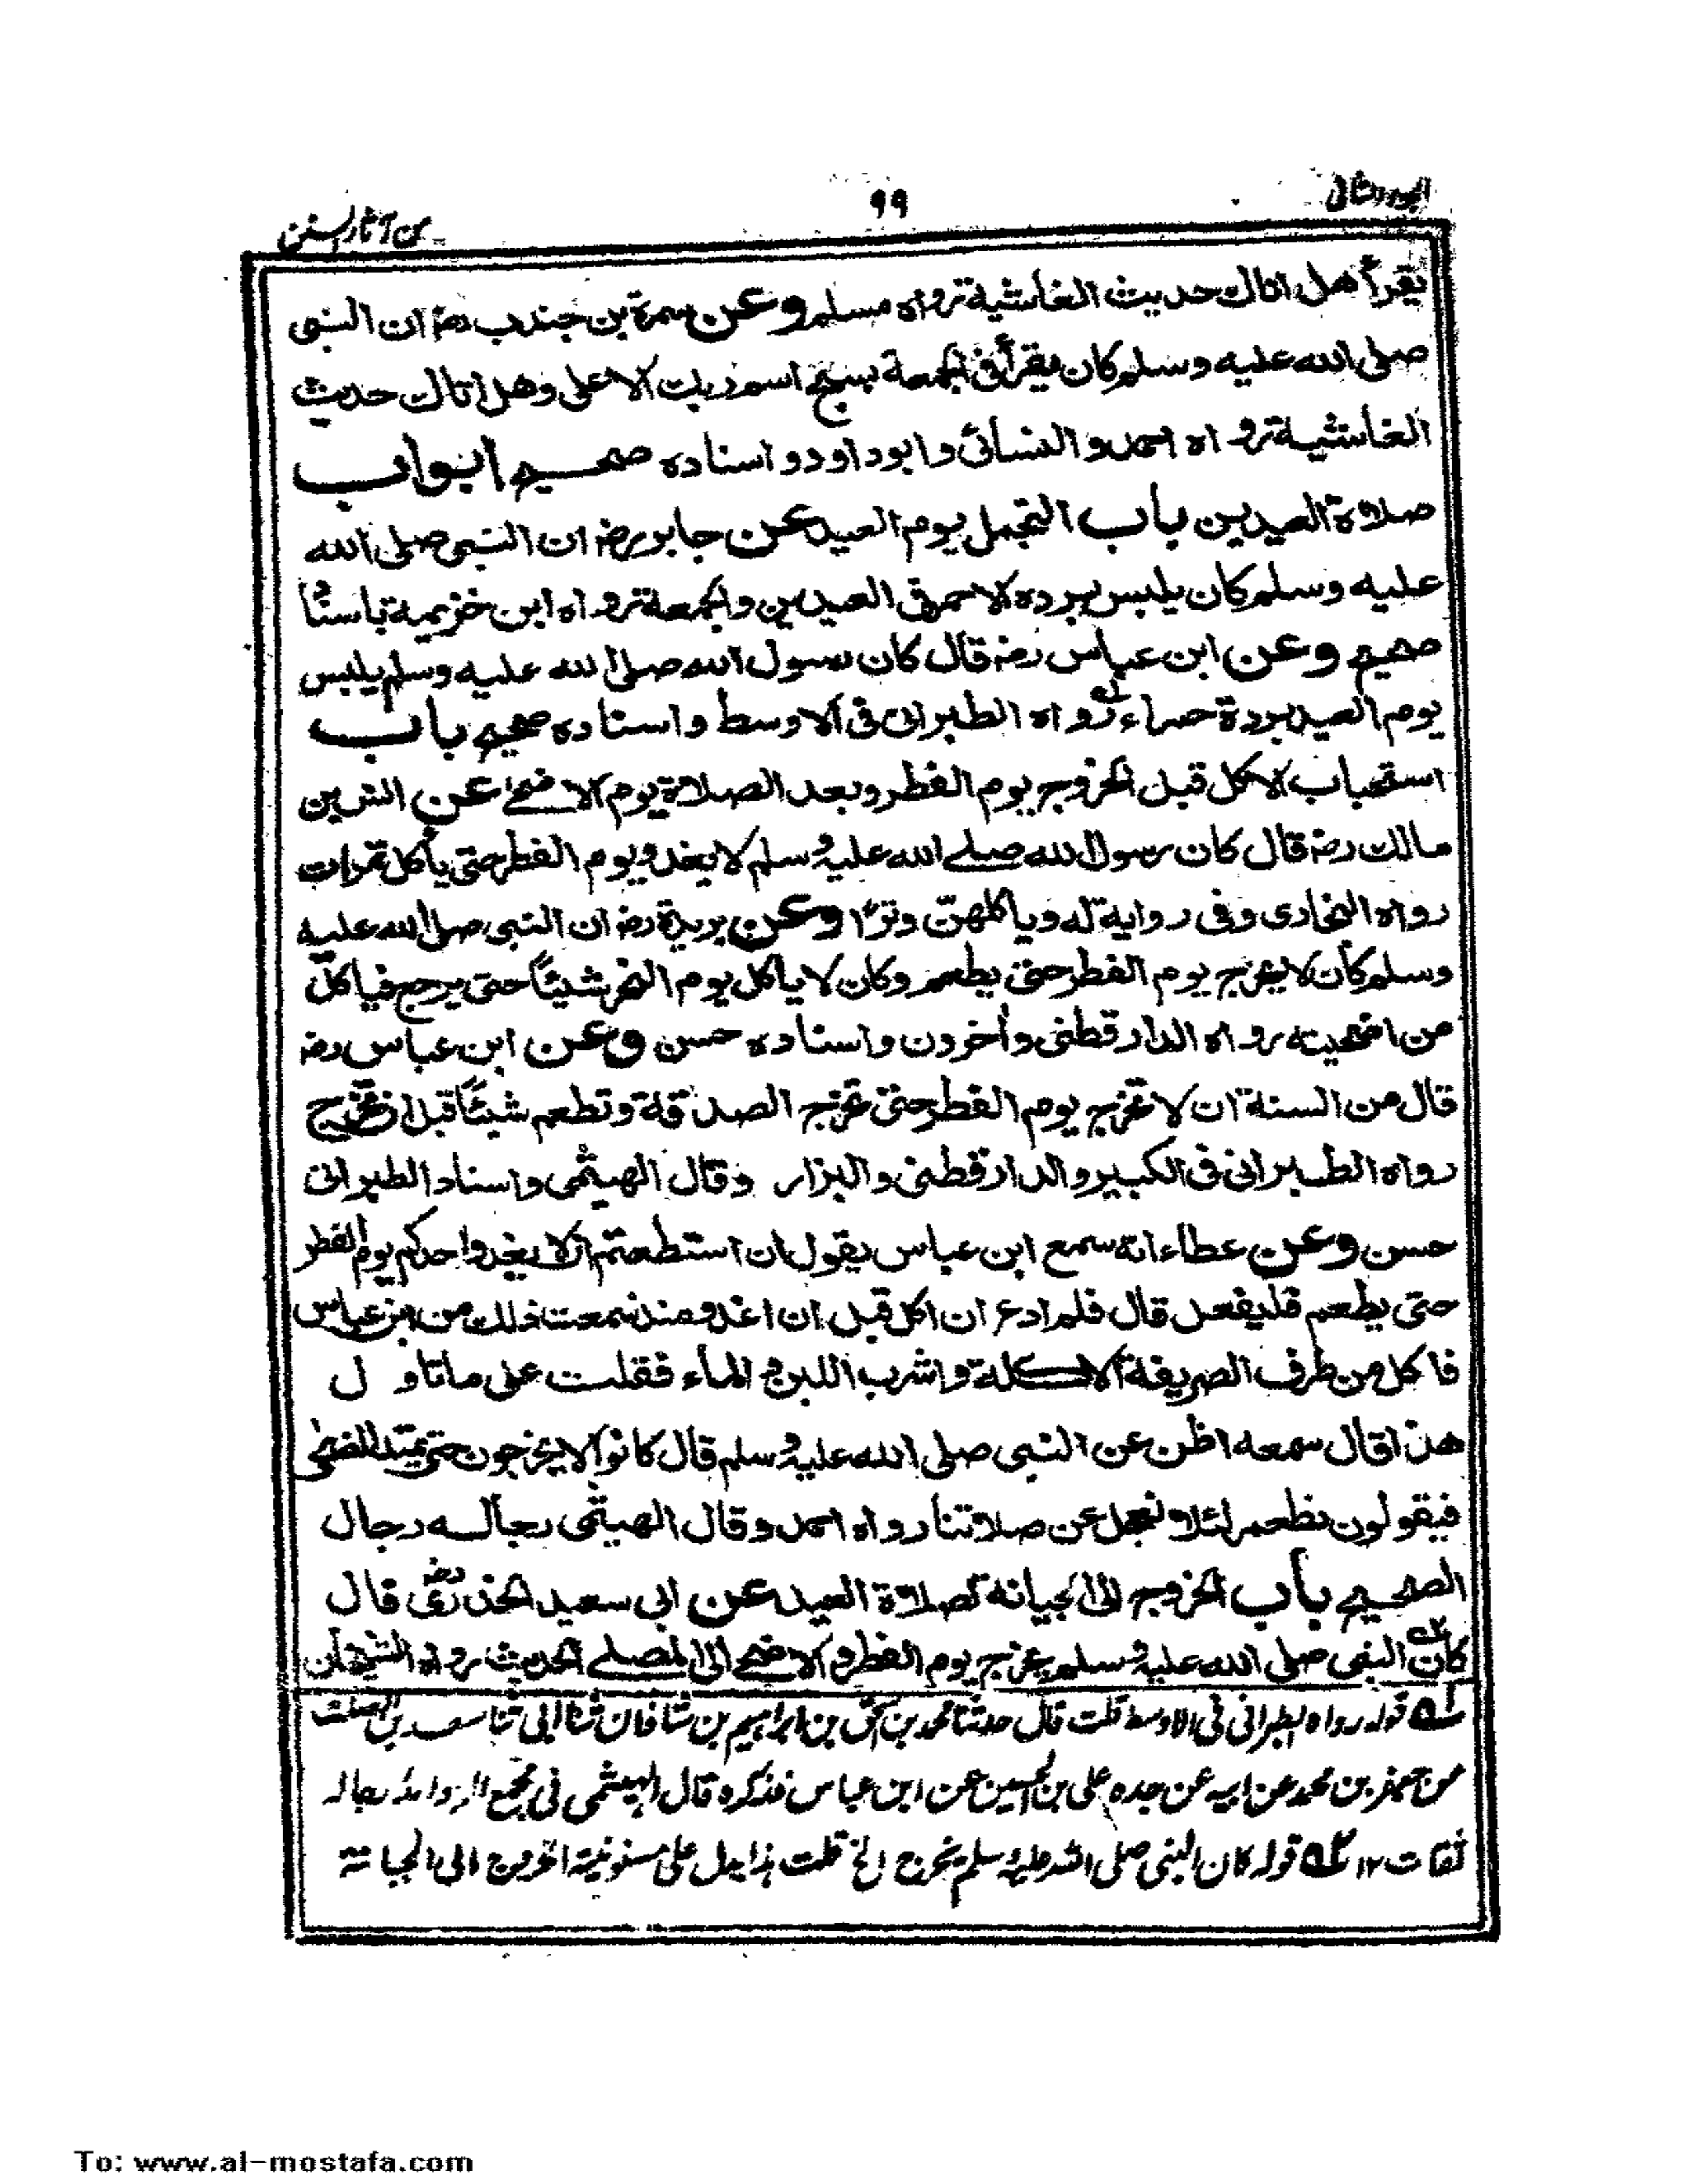 الجزء الثانى
٩٩
من آثار السنن
يقرأ هل اتاك حديث الغاشية رواه مسلم وعن سمرة بن جندب رض ان النبى
صلى الله عليه وسلم كان يقرأ فى الجمعة بسبح اسم ربك الاعلى وهل اتاك حديث
الغاشية رواه احمد والنسائى وابوداود واسناده صحيح ابواب
صلاة العيدين باب التجمل يوم العيد عن جابر رض ان النبى صلى الله
عليه وسلم كان يلبس برده الاحمر فى العيدين والجمعة رواه ابن خزيمة باسناد
صحيح وعن ابن عباس رض قال كان رسول الله صلى الله عليه وسلم يلبس
يوم العيد بردة حمراء رواه الطبرانى فى الاوسط واسناده صحيح باب
استحباب الاكل قبل الخروج يوم الفطر وبعد الصلاة يوم الاضحى عن انس بن
مالك رض قال كان رسول الله صلے الله عليه وسلم لا يغدو يوم الفطر حتى يأكل تمرات
رواه البخارى وفى رواية له وياكلهنّ وترًا وعن بريدة رض ان النبى صلى الله عليه
وسلم كان لا يخرج يوم الفطر حتى يطعم وكان لا ياكل يوم النحر شيئاً حتى يرجع فياكل
من اضحيته رواه الدارقطنى وأخرون واسناده حسن وعن ابن عباس رض
قال من السنة ان لا تخرج يوم الفطر حتى تخرج الصدقة وتطعم شيئاً قبل ان تخرج
رواه الطبرانى فى الكبير والدارقطنى والبزار وقال الهيثمى واسناد الطبرانى
حسن وعن عطاء انه سمع ابن عباس يقول ان استطعتم ان لا يغدو احدكم يوم الفطر
حتى يطعم فليفعل قال فلم ادع ان اكل قبل ان اغدو منذ سمعت ذلك من ابن عباس
فاكل من طرف الصريفة الاكلة واشرب اللبن والماء فقلت على ما تاول
هذا قال سمعه اظن عن النبى صلى الله عليه وسلم قال كانوا لا يخرجون حتى يمتد الضحى
فيقولون نطعم لئلا نعجل عن صلاتنا رواه احمد وقال الهيثمى رجاله رجال
الصحيح باب الخروج الى الجبانة لصلاة العيد عن ابى سعيد الخدرى رض قال
كان النبى صلى الله عليه وسلم يخرج يوم الفطر والاضحے الى المصلے الحديث رواه الشيخان
١؎ قوله رواه الطبرانى فى الاوسط قلت قال حدثنا محمد بن اسحق بن ابراهيم بن شاذان ثنا ابى ثنا سعد بن الصلت
عن جعفر بن محمد عن ابيه عن جده على بن الحسين عن ابن عباس فذكره قال الهيثمى فى مجمع الزوائد رجاله
ثقات ١٢ ٢؎ قوله كان النبى صلى الله عليه وسلم يخرج الخ قلت هذا يدل على مسنونية الخروج الى الجبانة
To: www.al-mostafa.com